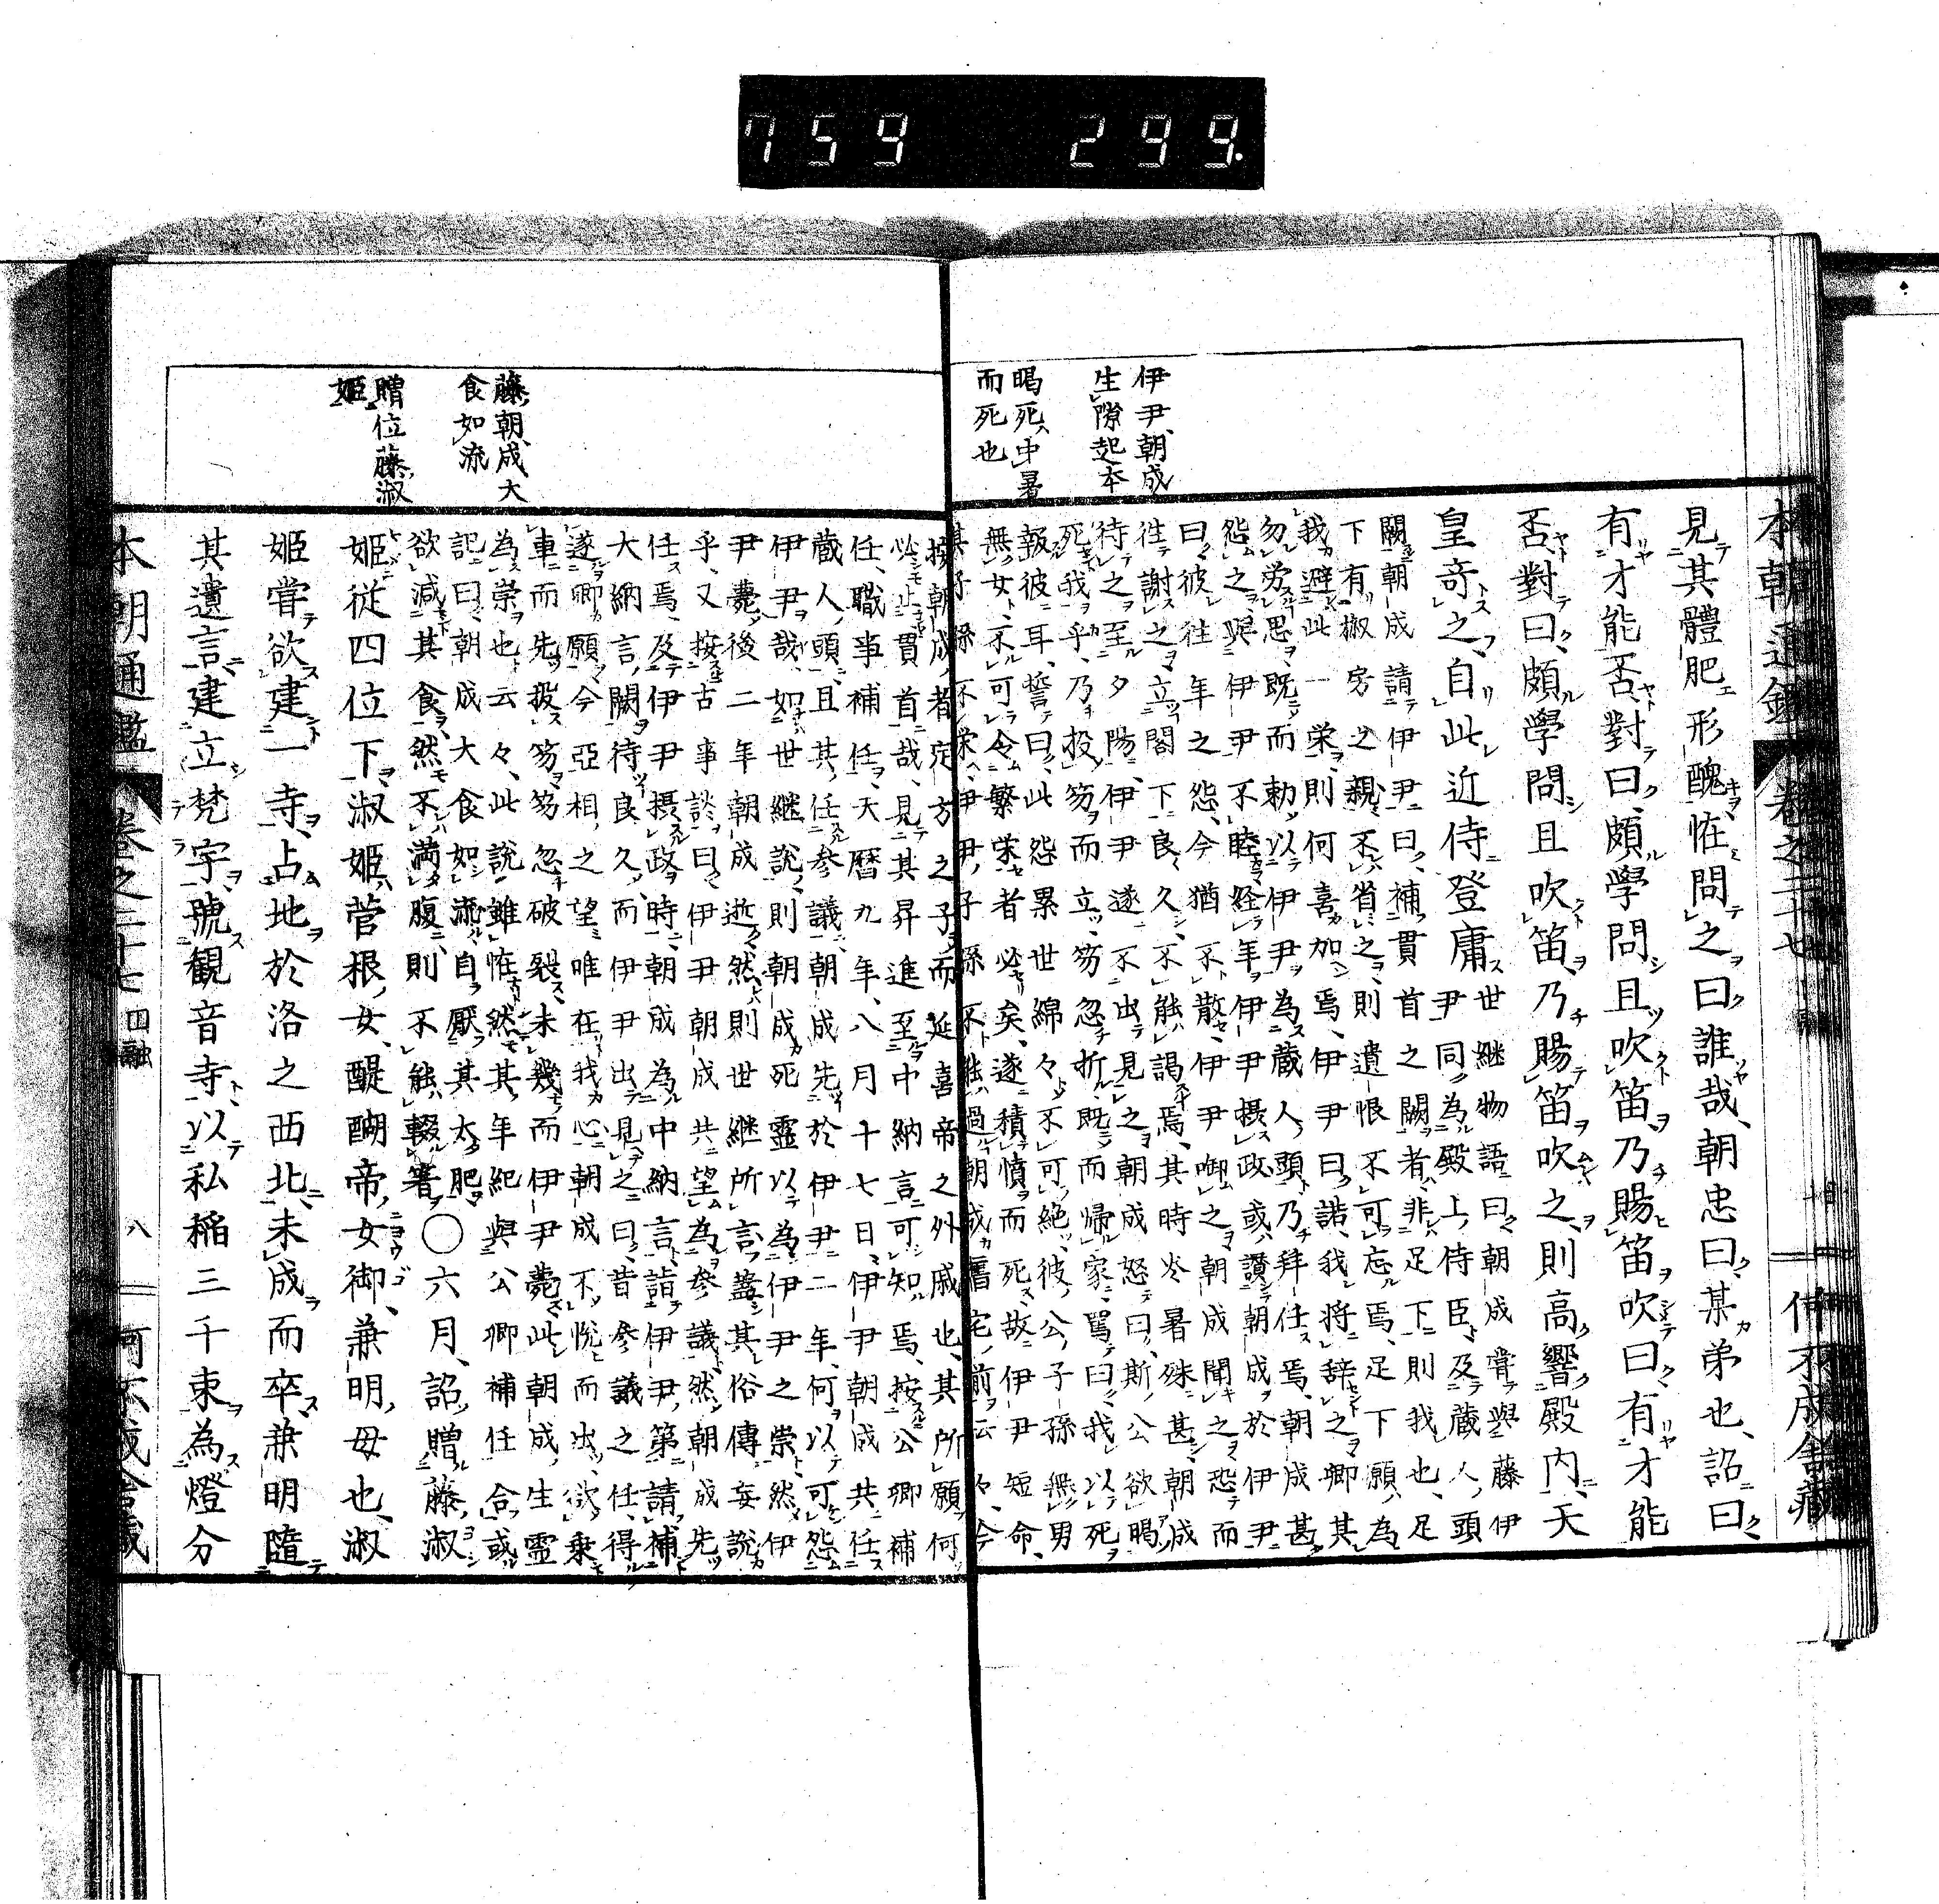 759 299.
伊尹朝成
生隙起本
暍死中暑
而死也
見其體肥形醜恠問之曰誰哉朝忠曰某弟也詔曰
有才能否對曰頗學問且吹笛乃賜笛吹曰有才能
否對曰頗學問且吹笛乃賜笛吹之則高響殿内天
皇奇之自此近侍登庸
世継物語曰朝成嘗與藤伊
尹同為殿上侍臣及蔵人頭
闕朝成請伊尹曰補貫首之闕者非足下則我也足
下有椒房之親不省之則遺恨不可忘焉足下願為
我避此一栄則何喜加焉伊尹曰諾我将辞之卿其
勿労思既而勅以伊尹為蔵人頭乃拜任焉朝成甚
怨之與伊尹不睦経年伊尹摂政或讃朝成於伊尹
曰彼往年之怨今猶不散伊尹啣之朝成聞之恐而
往謝之立閤下良久不能謁焉其時炎暑殊甚朝成
待之至夕陽伊尹遂不出見之朝成怒曰斯公欲暍
死我乎乃投笏而立笏忽折既而帰家罵曰我以死
報彼耳誓曰此怨累世綿々不可絶彼公子孫無男
無女不可令繁栄者必矣遂積憤而死故伊尹短命
其子孫不栄伊尹子孫不能過朝成舊宅前云々今
藤朝成大
食如流
贈位藤淑
姫
按朝成者定方之子而延喜帝之外戚也其所願何
必止貫首哉見其昇進至中納言可知焉按公卿補
任職事補任天暦九年八月十七日伊尹朝成共任
蔵人頭且其任参議朝成先於伊尹二年何以可怨
伊尹哉如世継説則朝成死霊以為伊尹之崇然伊
尹薨後二年朝成逝然則世継所言蓋其俗傳妄説
乎又按古事談曰伊尹朝成共望為参議然朝成先
任焉及伊尹摂政時朝成為中納言詣伊尹第請補
大納言闕待良久而伊尹出見之曰昔参議之任得
遂卿願今亜相之望唯在我心朝成不悦而出欲乗
車而先投笏笏忽破裂未幾而伊尹薨此朝成生霊
為崇也云々此説雖恠然其年紀與公卿補任合或
記曰朝成大食如流自厭其太肥
欲減其食然不満腹則不能輟箸
〇六月詔贈藤淑
姫従四位下淑姫菅根女醍醐帝女御兼明母也淑
姫嘗欲建一寺占地於洛之西北未成而卒兼明隨
其遺言建立梵宇號観音寺以私稲三千束為燈分
本朝通鑑 巻之二十七 圓融 八